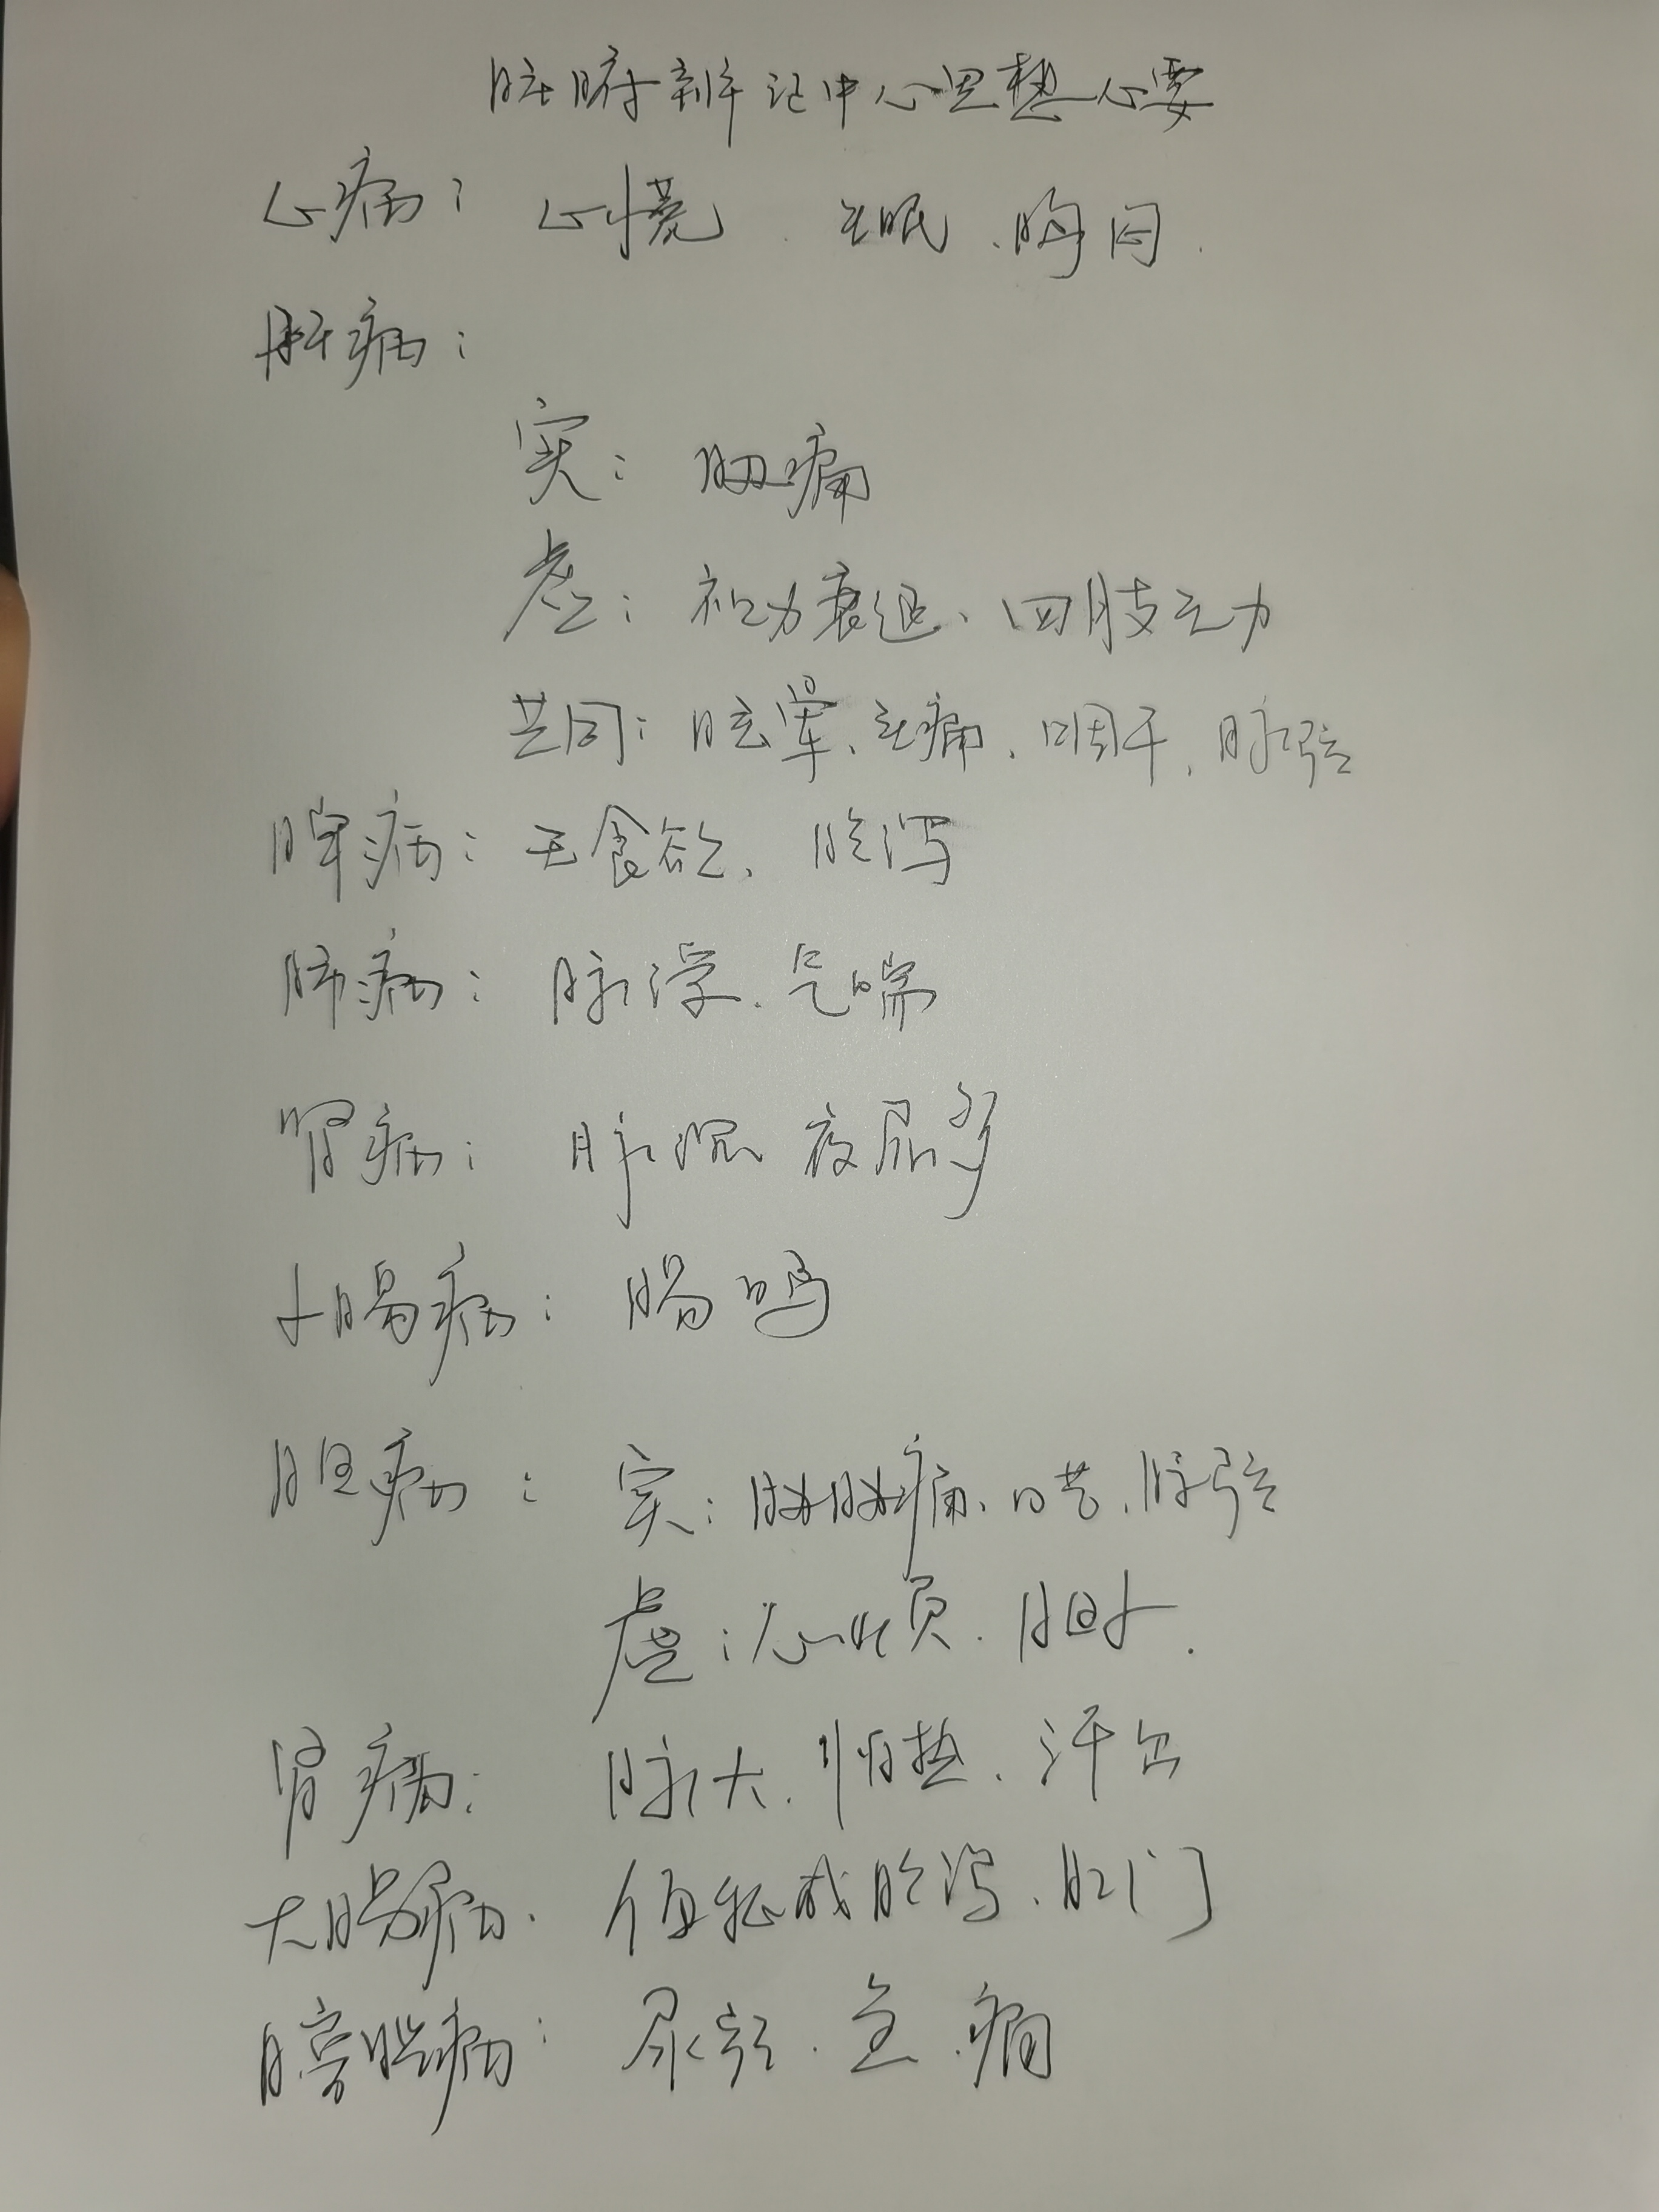 脏腑辨证中心思想心要
心病：心慌、失眠、胸闷.
肝病：
实：胁痛
虚：视力衰退、四肢乏力
共同：眩晕、头痛、咽干、脉弦
脾病：无食欲、腹泻
肺病：脉浮、气喘
肾病：脉沉 夜尿多
小肠病：肠鸣
胆病：实：胁肋痛、口苦、脉弦
虚：心烦、胆小.
胃病：脉大、恶热、汗出
大肠病：便秘或腹泻、肛门
膀胱病：尿频、急、痛